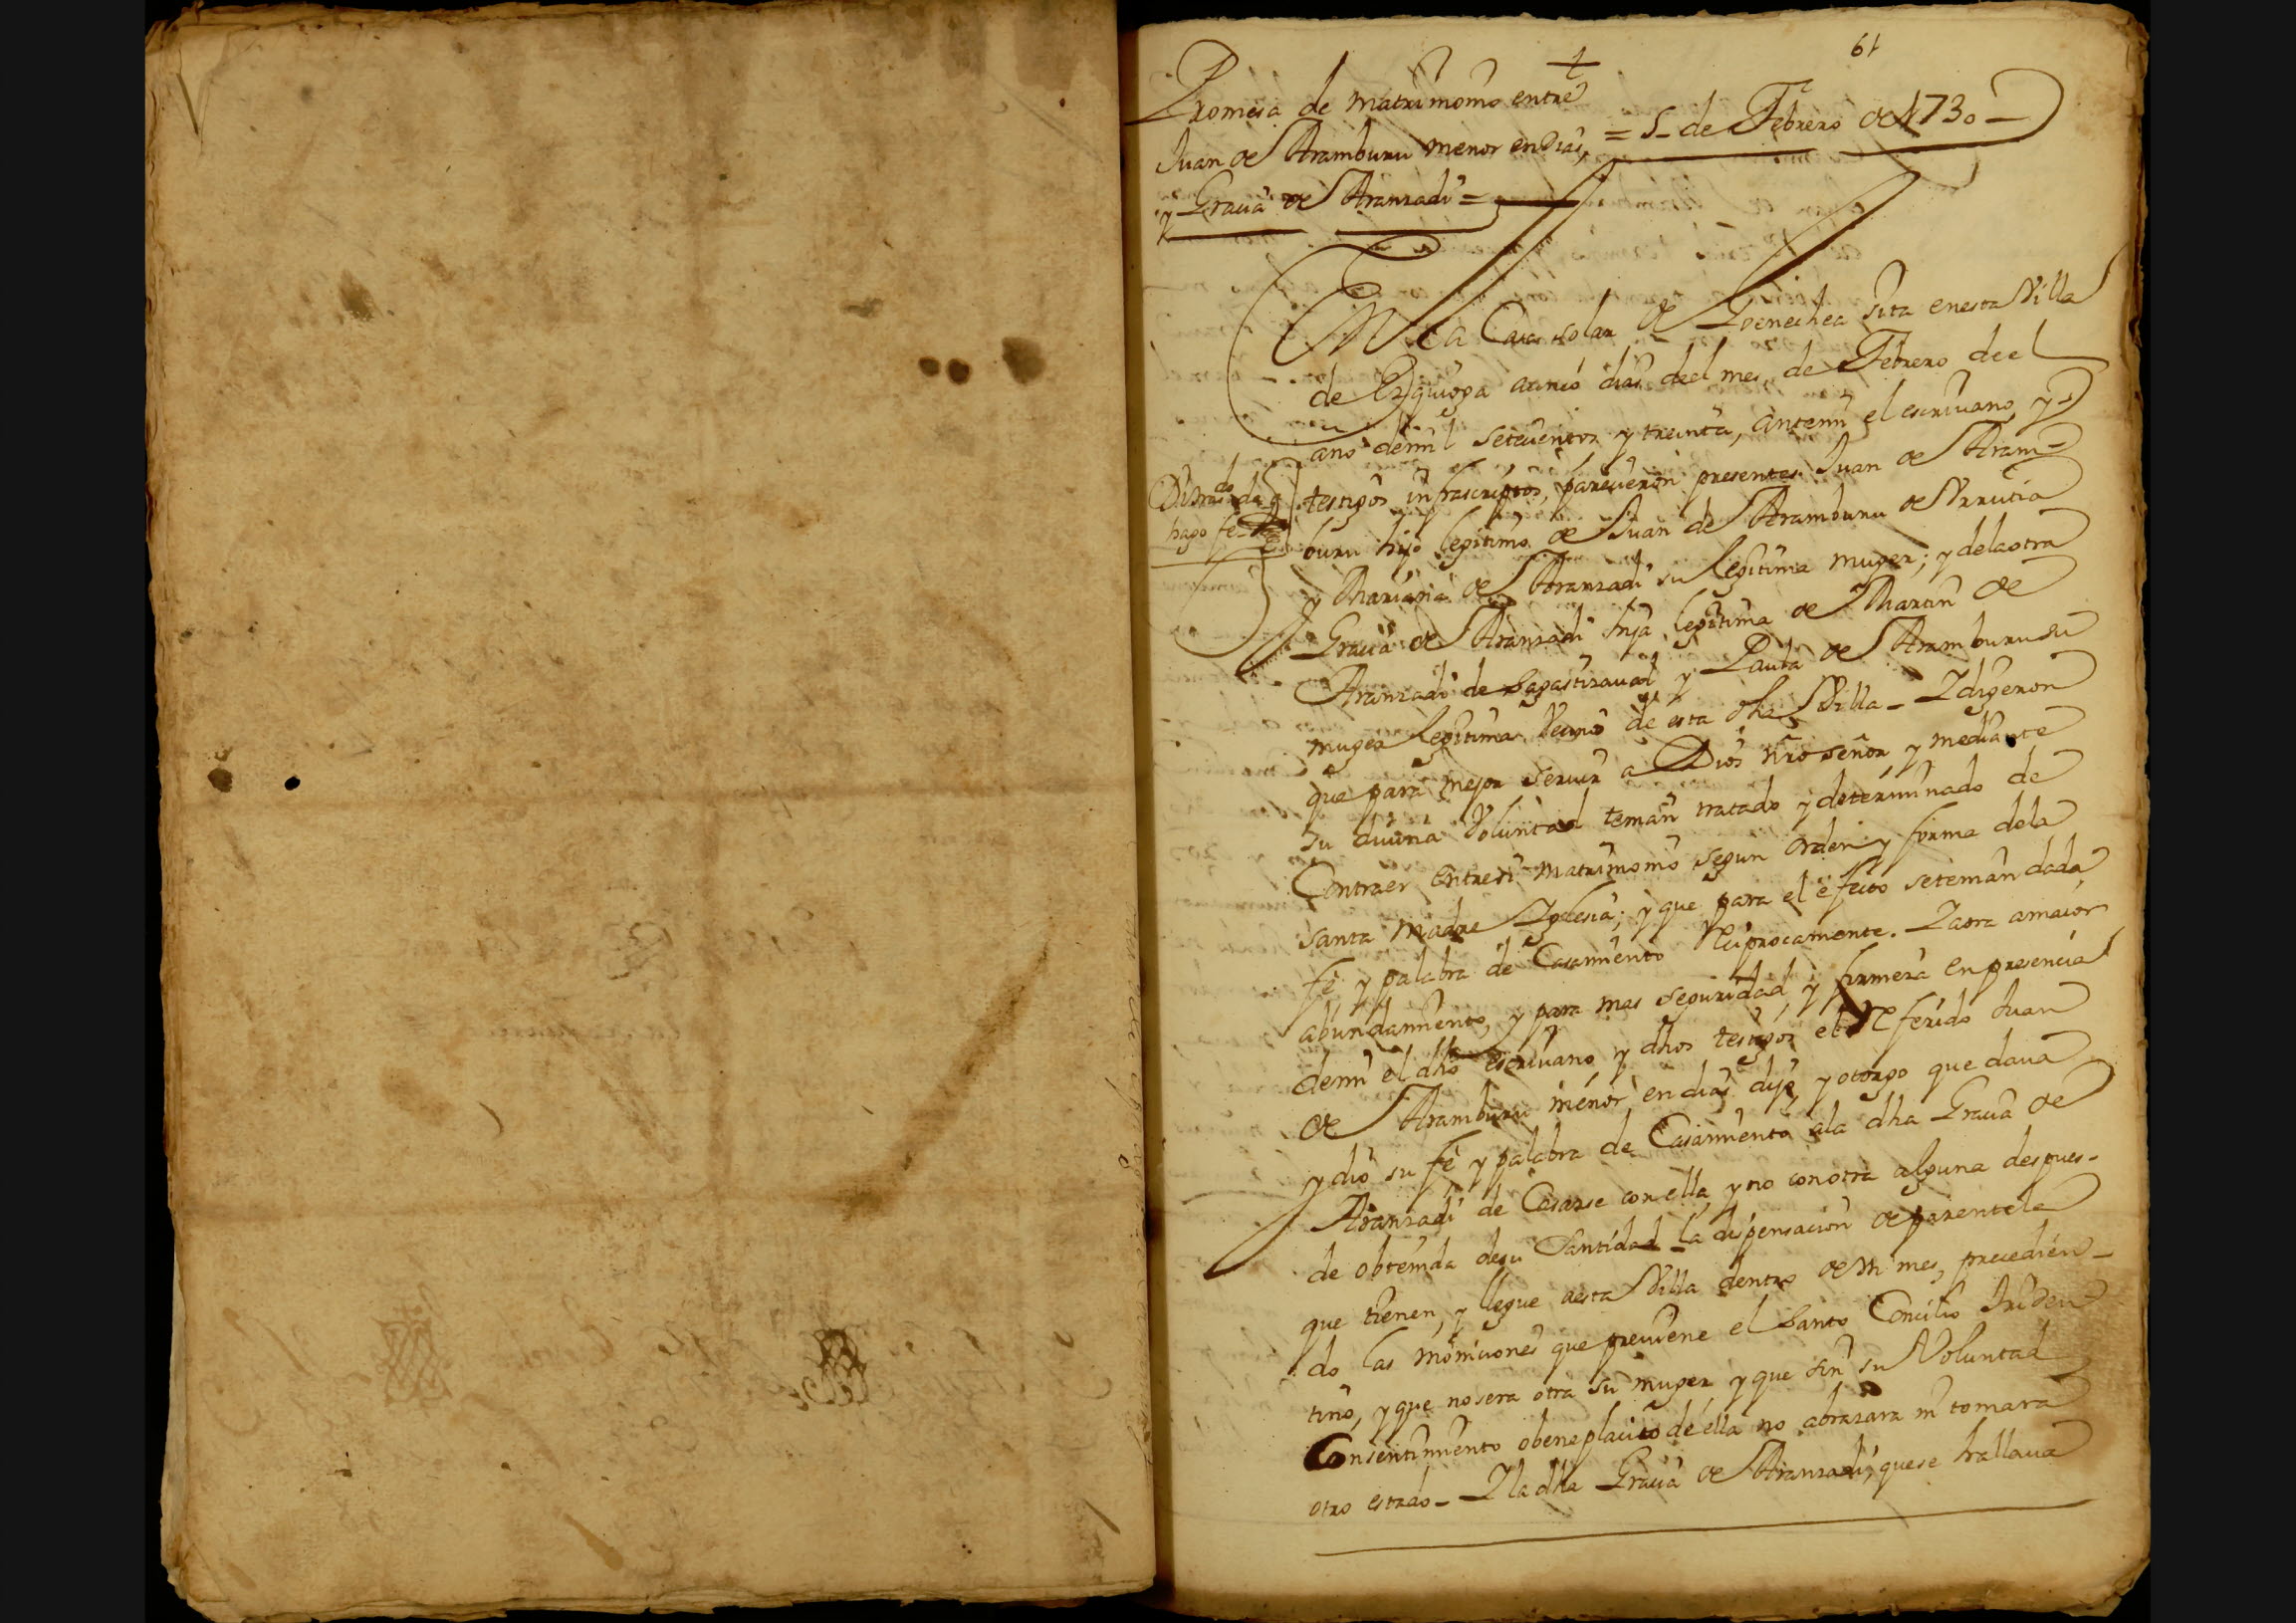 61
Promesa de matrimonio entre
Juan de Aramburu menor en dias, = 5 de Febrero de 1730
y Gracia de Aranzadi =
En la Casa solar de Igenechea sita en esta Villa
de Ezquioga a cinco dias de el mes de Febrero de el
año de mil setecientos y treinta, ante mi el escrivano y
testigos infrascriptos, parecieron presentes Juan de Aram-
hago fe
buru hijo legitimo de Juan de Aramburu de Urrutia
y Mariana de Aranzadi su legitima muger; y de la otra
Gracia de Aranzadi hija legitima de Martin de
Aranzadi de Sagastizaval y Paula de Aramburu su
muger legitima Vecinos de esta dha Villa - Y digeron
que para mejor servir a Dios nro señor y mediante
su divina Voluntad tenian tratado y determinado de
Contraer entre si matrimonio segun orden y forma de la
santa Madre Iglesia; y que para el efecto se tenian dada
fe y palabra de Casamiento Reciprocamente. Y aora a maior
abundamiento, y para mas seguridad y firmeza en presencia
de mi el dho escrivano y dhos testigos el Referido Juan
de Aramburu menor en dias dijo y otorgo que dava
y dio su fe y palabra de Casamiento a la dha Gracia de
Aranzadi de Casarse con ella y no con otra alguna despues-
de obtenida de su Santidad la dispensacion de parentela
que tienen, y llegue a esta Villa dentro de Un mes, precedien-
do las moniciones que previene el Santo Concilio Triden
tino, y que no sera otra su muger y que sin su Voluntad
Consentimiento o beneplacito de ella no abrazara ni tomara
otro estado - Y la dha Gracia de Aranzadi, que se hallava